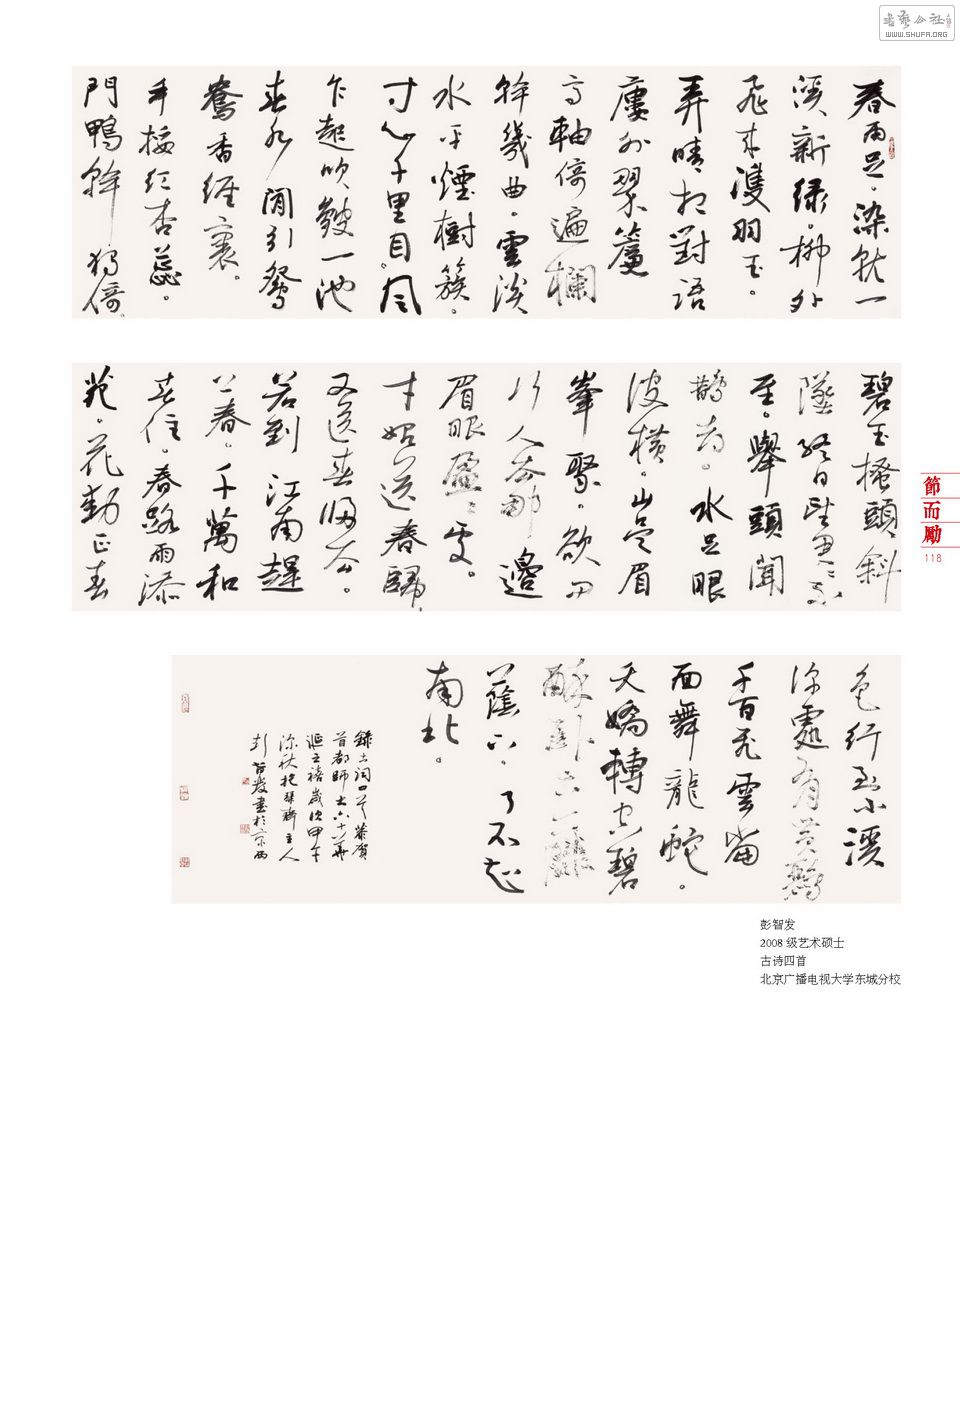 春雨足。染就一
溪新绿。柳外
飛來雙羽玉。
弄晴相對語
廔外翠簾
高軸倚遍欄
幹幾曲。雲淡
水平煙樹簇。
寸心千里目。風
乍起吹皺一池
春水閒引鴛
鴦香徑裏。
手挼紅杏蕊。
門鴨幹獨倚。
碧玉搔頭斜
墜終日望君君不
至。舉頭聞
鵲喜。水是眼
波橫。山是眉
峯聚。欲問
行人去那邊
眉眼盈盈處。
才始送春歸。
又送春歸去。
若到江南趕
上春。千萬和
春住。春路雨添
花。花動春
色行到小溪
深處有黃鸝
千百飛雲當
面舞龍蛇。
夭嬌轉空碧
醉卧古藤
蔭下。了不知
南北。
錄古詞四首恭賀
首都師大六十華
誕之禧歲次甲午
深秋抱琴齋主人
彭智發書於京西
彭智发
2008 级艺术硕士
古诗四首
北京广播电视大学东城分校
節而勵
118
书艺公社
WWW.SHUFA.ORG